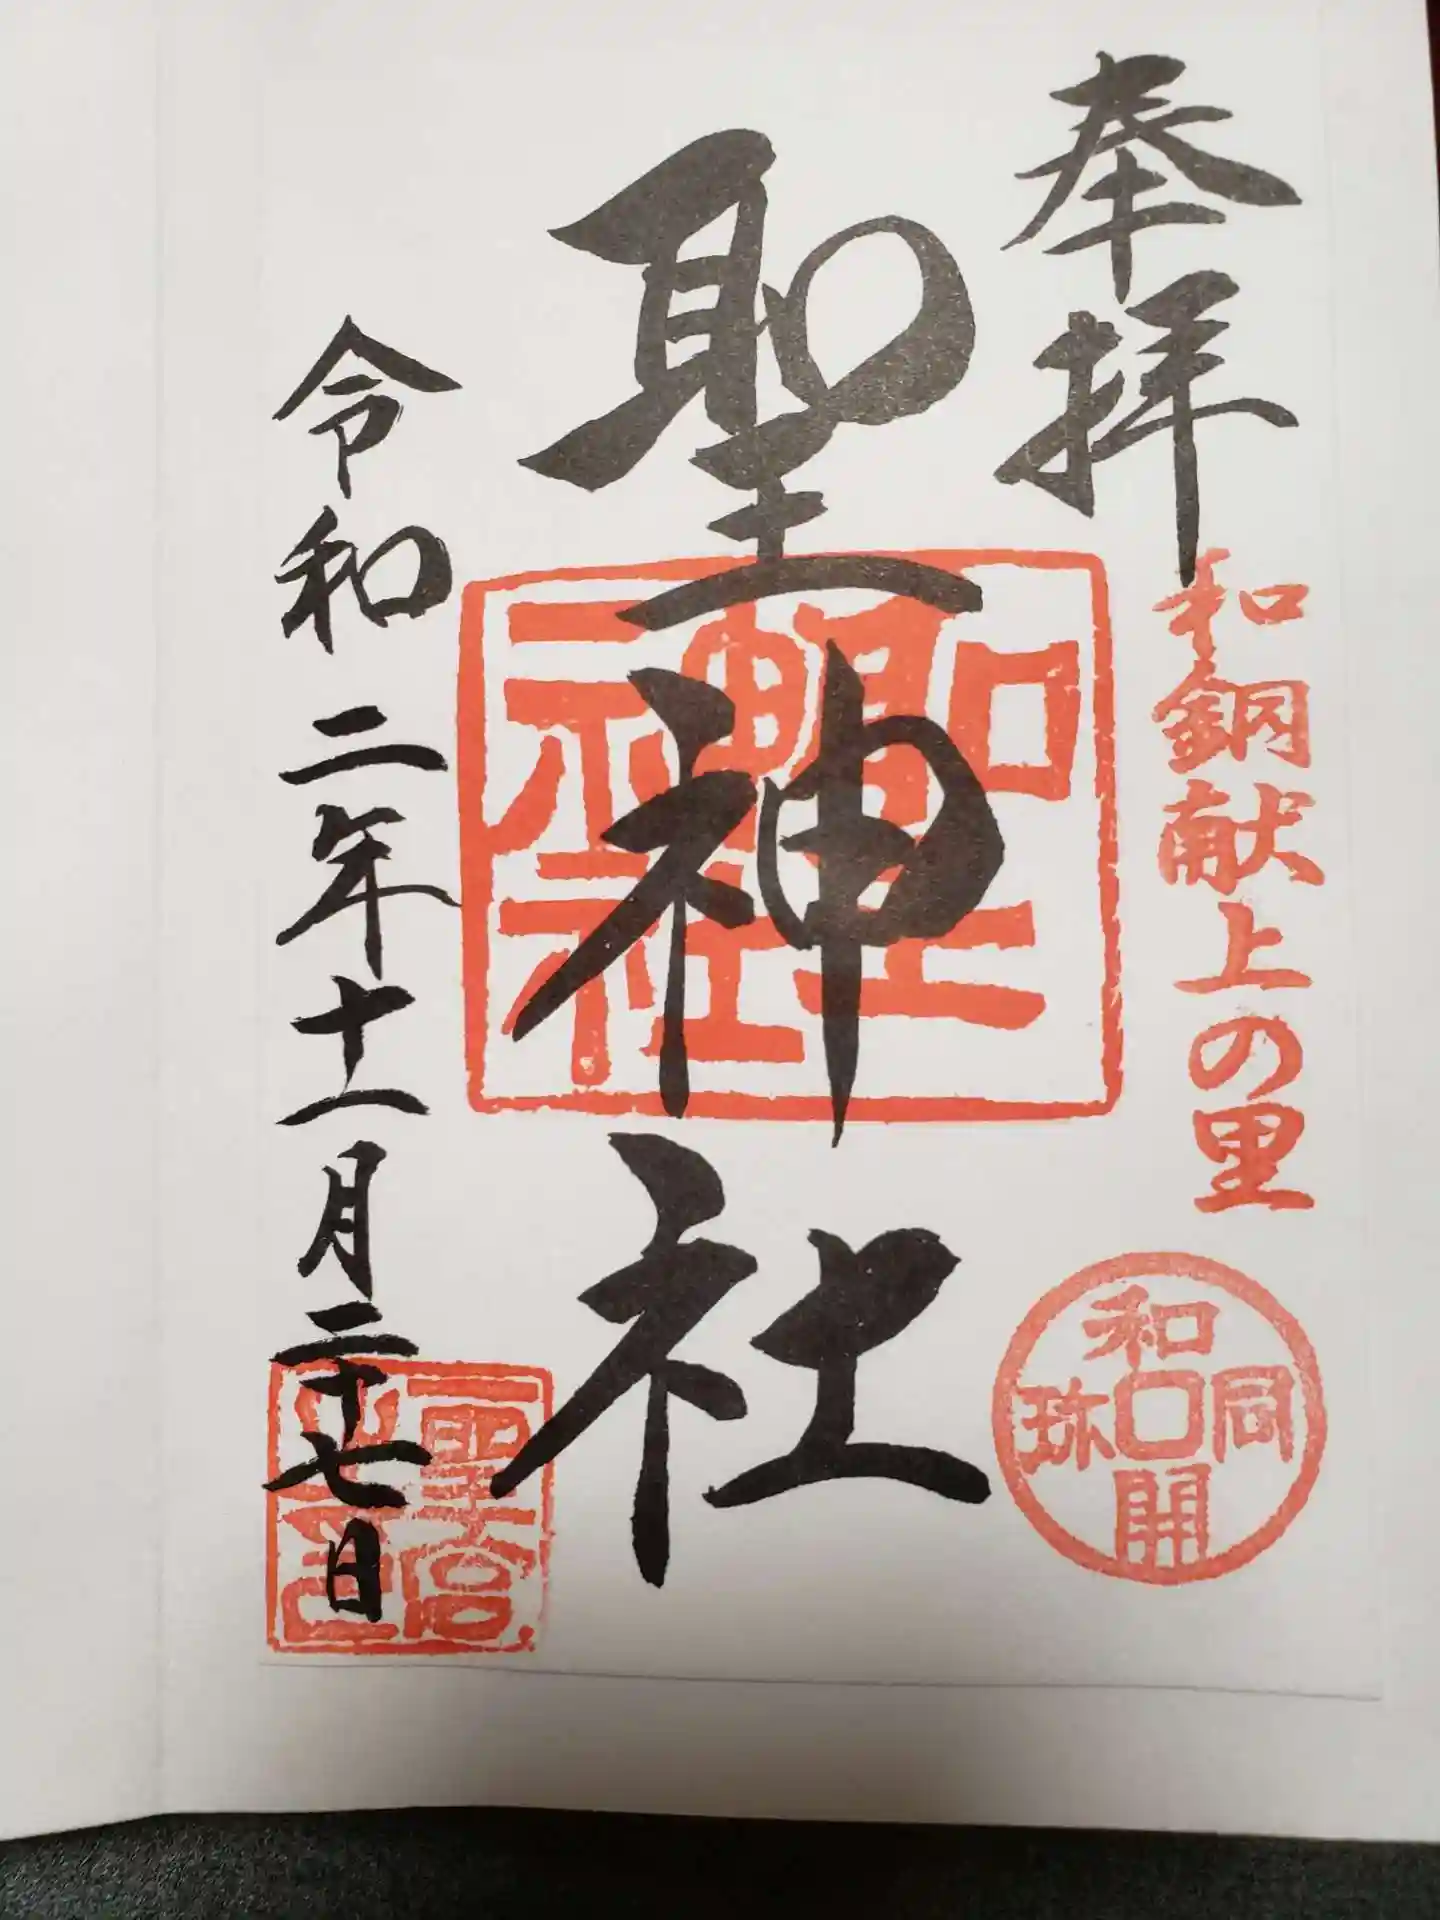 奉拝
和銅献上の里
和同開珎
聖神社
聖神社
令和二年十一月二十七日